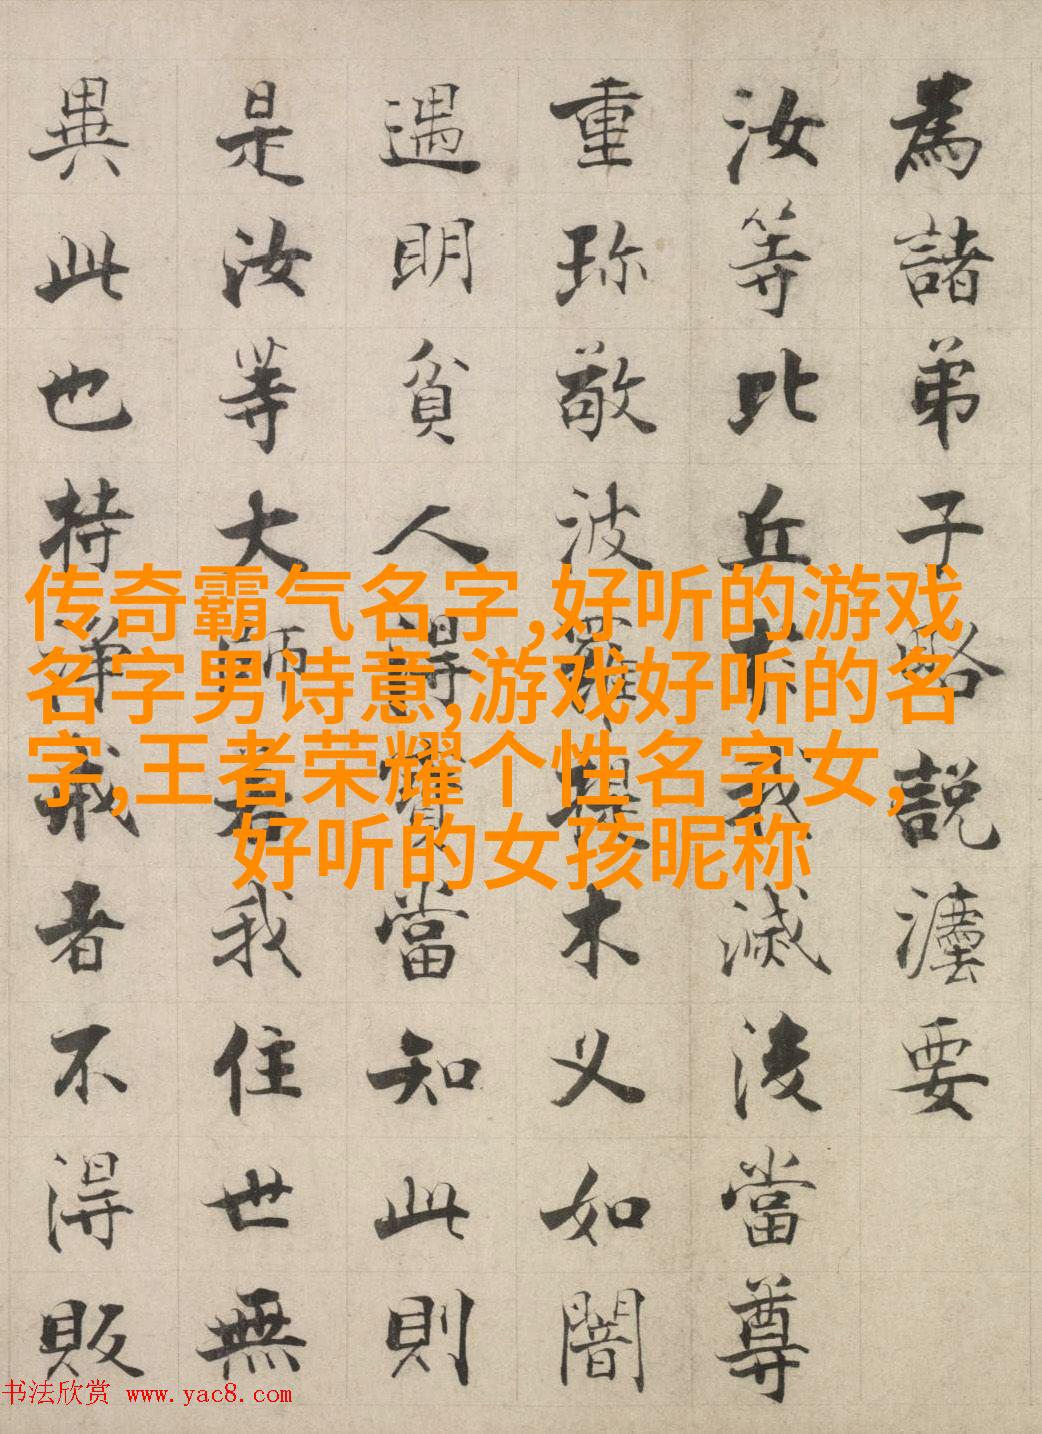 為諸弟子略說法要
汝等比丘於我滅後當尊
重珎敬波羅提木叉如闇
遇明貧人得寶當知此則
是汝等大師若我住世無
異此也持淨戒者不得販
传奇霸气名字,好听的游戏
名字男诗意,游戏好听的名
字,王者荣耀个性名字女,
好听的女孩昵称
书法欣赏 www.yac8.com